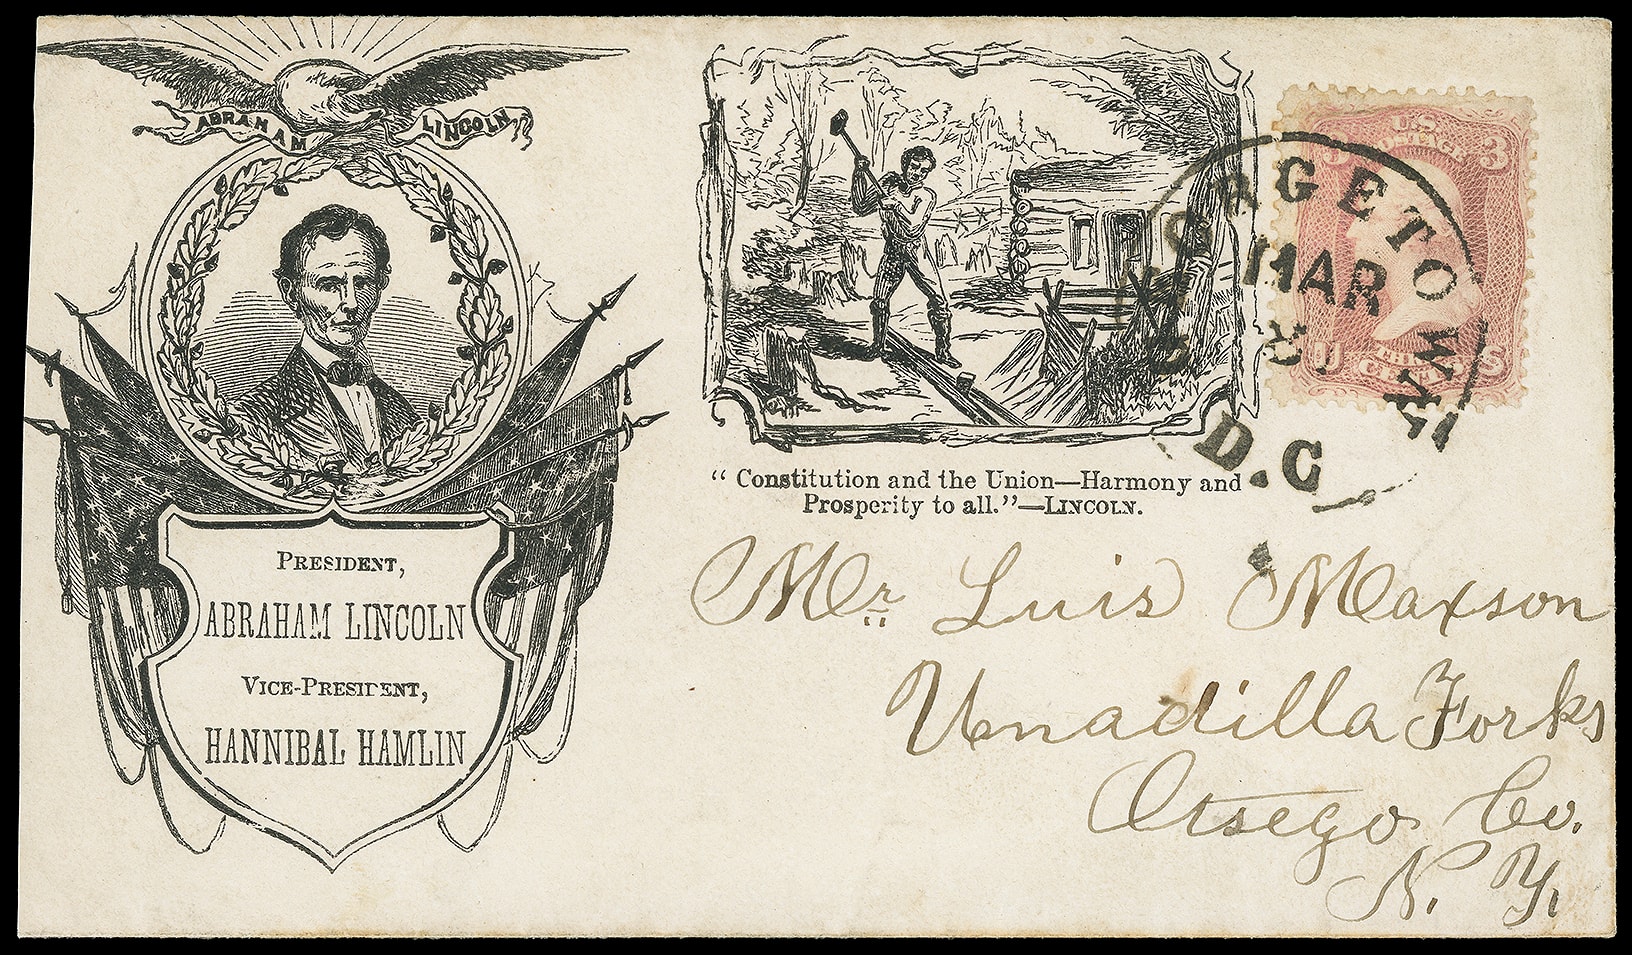 ABRAHAM LINCOLN
PRESIDENT,
ABRAHAM LINCOLN
VICE-PRESIDENT,
HANNIBAL HAMLIN
“ Constitution and the Union—Harmony and
Prosperity to all.”—LINCOLN.
U.S. POSTAGE
3
U THREE CENTS S
GEORGETOWN
MAR
D.C
Mr. Luis Maxson
Unadilla Forks
Otsego Co.
N. Y.